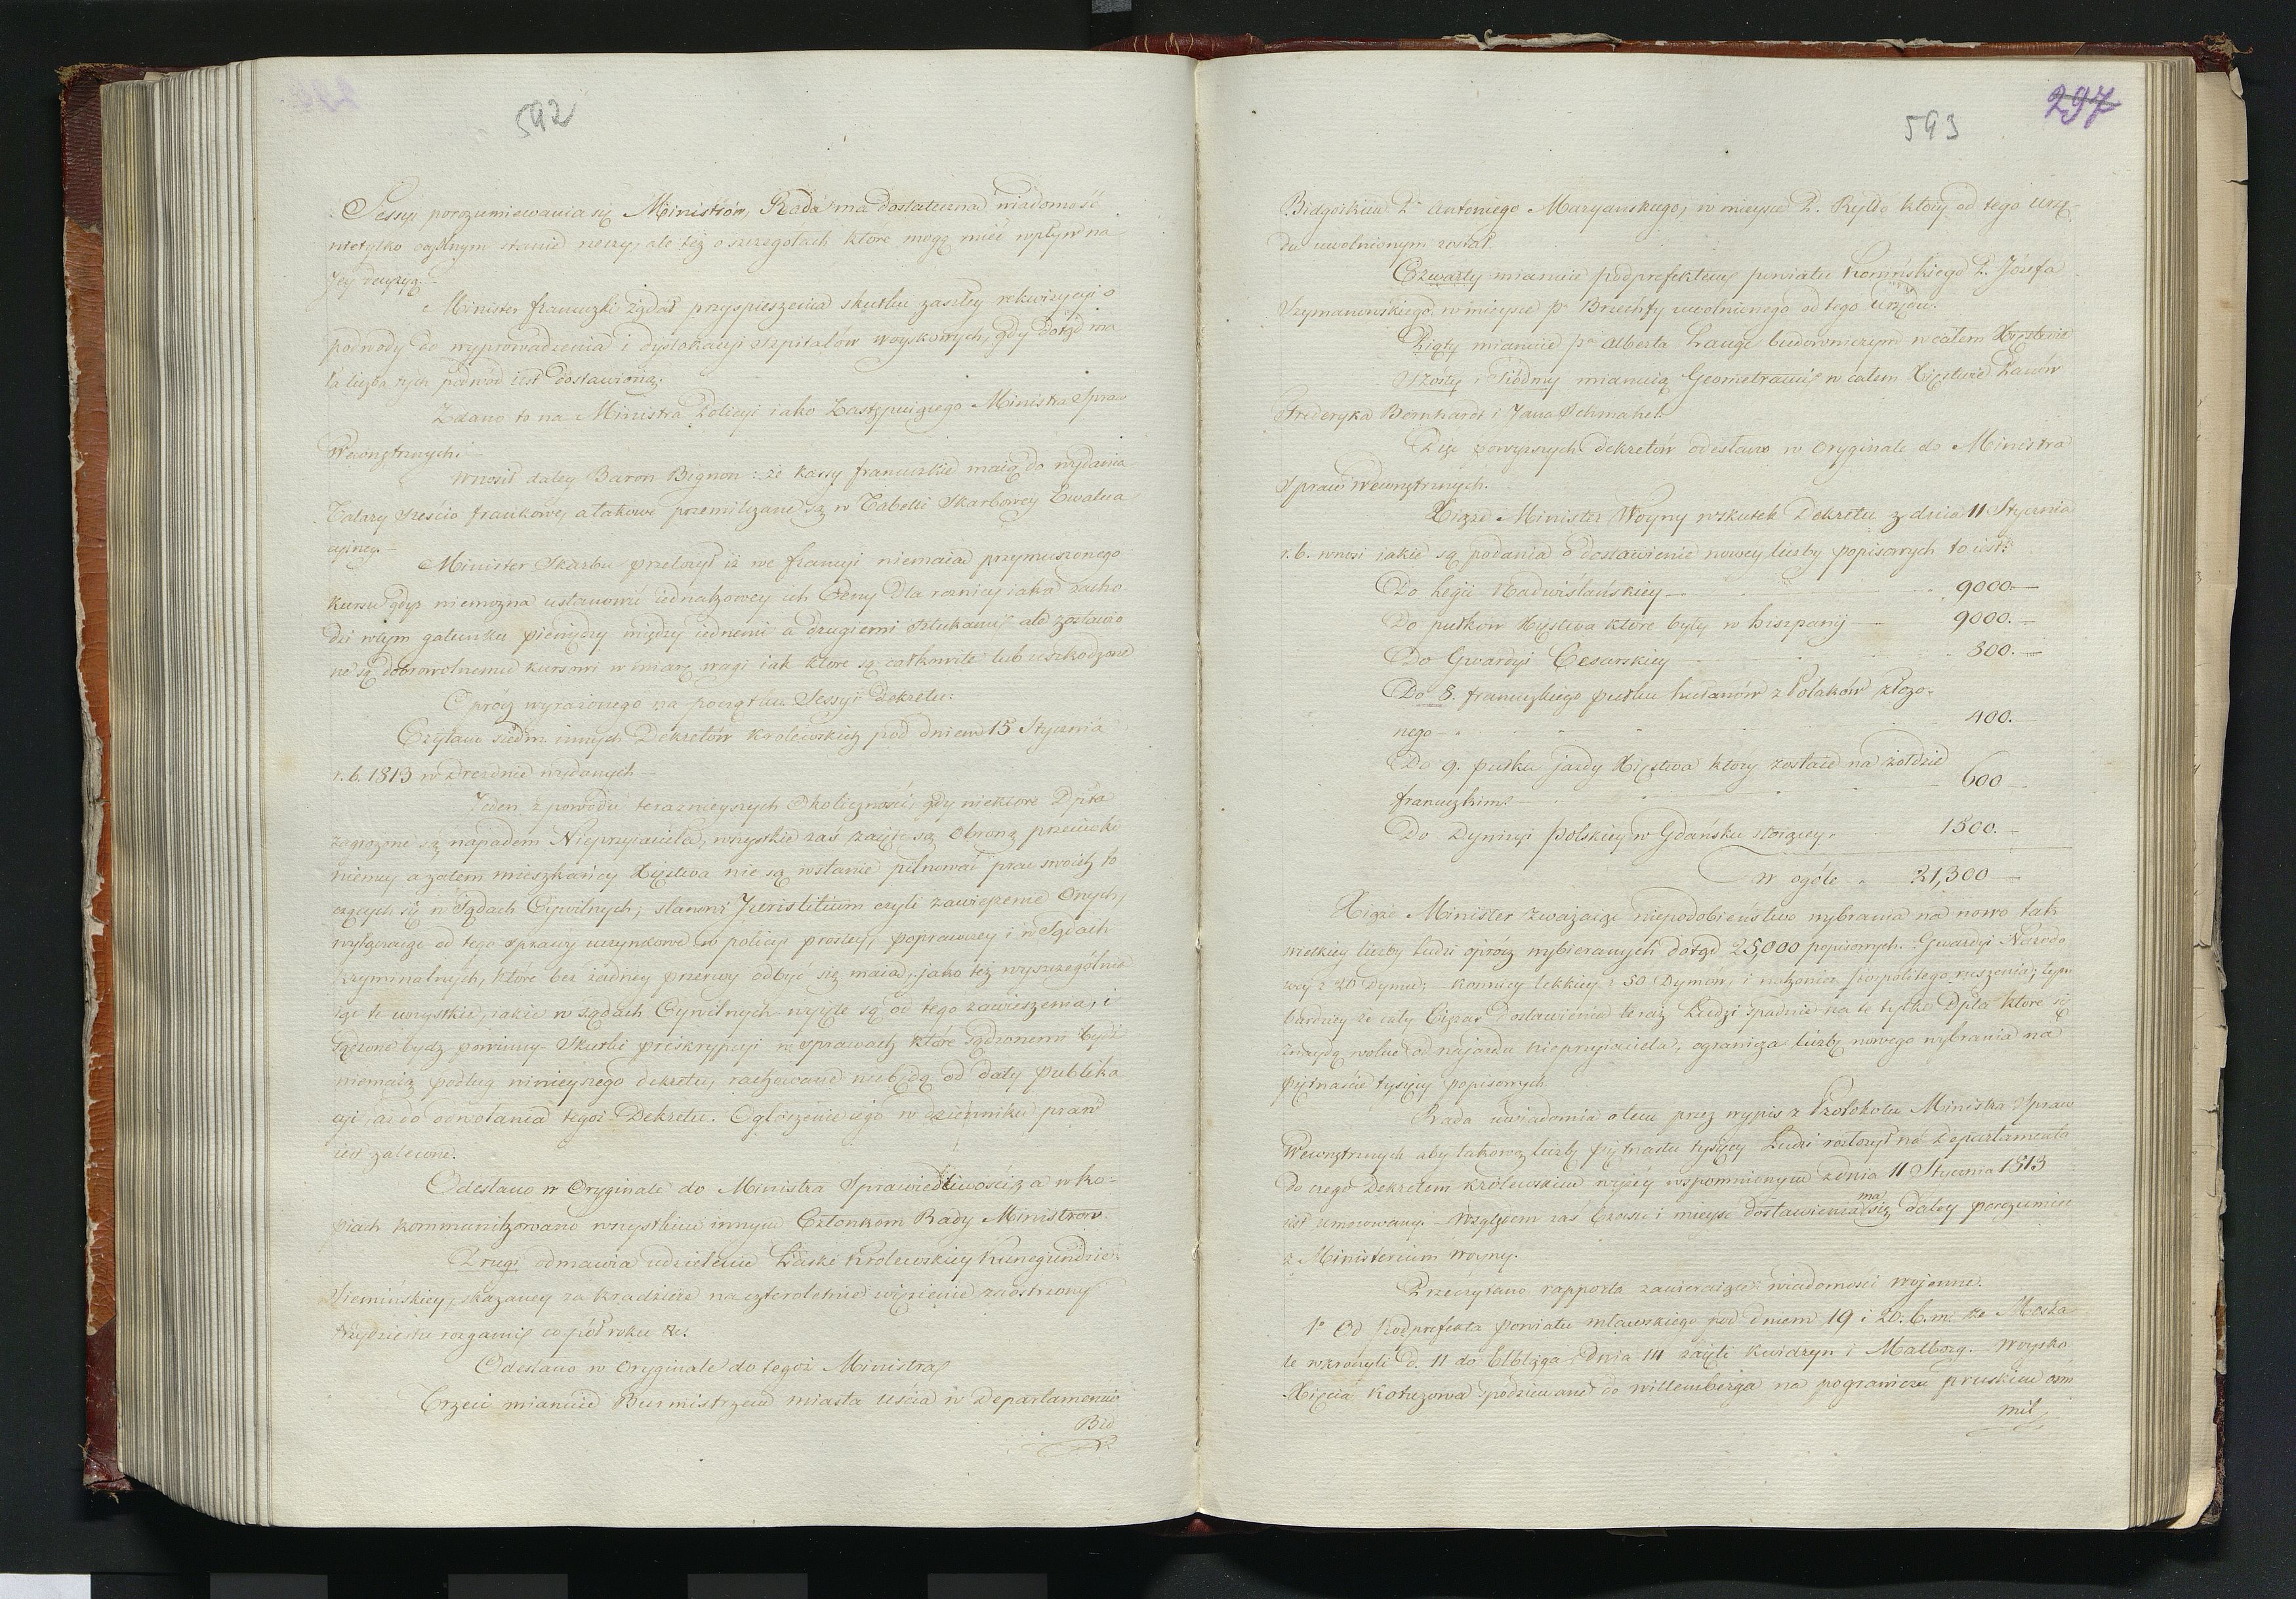 592
Sessyi porozumiewania się Ministrów, Rada ma dostateczną wiadomość
nietylko ogólnym stanie rzeczy, ale też o szczegółach które mogą mieć wpływ na
Jey decyzyą.
Minister francuzki żądał przyspieszenia skutku zaszłey rekwizycyi o
podwody do wyprowadzenia i dyslokacyi szpitalów woyskowych, gdy dotąd ma
ła liczba tych podwód iest dostawioną.
Zdano to na Ministra Policyi iako Zastępuiącego Ministra Spraw
Wewnętrznych.
Wnosił daley Baron Bignon: że kassy francuzkie maią do wydania
Talary sześcio frankowe, a takowe przemilczane są w Tabelli Skarbowey Ewalua
cyiney.
Minister Skarbu przełożył iż we francyi niemaią przymuszonego
kursu gdyż niemożna ustanowić iednakzowey ich Ceny dla rożnicy iaka zacho
dzi w tym gatunku pieniędzy między iednemi a drugiemi sztukami, ale zostawio
ne są dobrowolnemu kursowi w miarę wagi iak które są całkowite lub uszkodzone
Oprócz wyrażonego na początku Sessyi Dekretu:
Czytano siedm innych Dekretów Krolewskich pod dniem 15 Stycznia
r. b. 1813 w dreznie wydanych
Jeden z powodu teraznieyszych Okoliczności, gdy niektóre Dpta
zagrożone są napadem Nieprzyiaciela, wszystkie zaś zaięte są Obroną przeciwko
niemu, a zatem mieszkańcy Xięstwa nie są w stanie pilnować praw swoich to
czących się w Sądach Cywilnych, stanowi Juristitium czyli zawieszenie Onych,
wyłączaiąc od tego sprawy uczynkowe w policyi prostey, poprawczey i w Sądach
kryminalnych, które bez żadney przerwy odbyć się maią, jako też wyszczególnia
iąc te wszystkie, iakie w sądach Cywilnych wyięte są od tego zawieszenia, i
sądzone bydź powinny. Skutki preskrypcyi w sprawach które sądzonemi bydź
niemaią podług ninieyszego dekretu, rachowane niebędą od daty publika
cyi, aż do odwołania tegoż Dekretu. Ogłoszenie iego w dzienniku praw
iest zalecone.
Odesłano w Oryginale do Ministra Sprawiedliwości, a w ko-
piach kommunikowano wszystkim innym Członkom Rady Ministrów.
Drugi odmawia udzielenie Łaski Krolewskiey Kunegundzie
Siemińskiey, skazaney za kradzieże na czteroletnie więzienie zaostrzony
trzydziestu rózgami, co pół roku &c.
Odesłano w Oryginale do tegoż Ministra,
Trzeci mianuie Burmistrzem miasta Uścia w Departamencie
Bid
593
297
Bidgoskim P. Antoniego Maryańskiego, w mieysce P. Ryll, który od tego Urzę-
du uwolnionym został.
Czwarty mianuie podprefektem powiatu Konińskiego P. Józefa
Szymanowskiego w mieysce P. Brzechfy uwolnionego od tego urzędu.
Piąty mianuie Pa. Alberta Lange budowniczym w całem Xięstwie
Szósty i Siódmy mianuią Geometrami w całem Xięstwie Panów
Fryderyka Bernhardt i Jana Schmahel.
Pięć powyższych Dekretów odesłano w Oryginale do Ministra
Spraw Wewnętrznych.
Xiąże Minister Woyny wskutek Dekretu z dnia 11 Stycznia
r. b. wnosi iakie są podania o dostawienie nowey liczby popisowych to iest:
Do Legii Nadwiślańskiey 9000.
Do pułkow Xięstwa które były w hiszpanij 9000.
Do Gwardyi Cesarskiey 800.
Do 8. francuzkiego pułku hułanów z Polaków złożo-
nego 400.
Do 9. pułku jazdy Xięstwa który zostaie na żołdzie
francuzkim 600
Do Dywizyi polskiey w Gdańsku stoiącey 1500.
W ogóle 21,300
Xiąże Minister zważaiąc niepodobieństwo wybrania na nowo tak
wielkiey liczby ludzi oprócz wybieranych dotąd 25,000 popisowych. Gwardyi Narodo
wey z 20 Dymu, konnicy lekkiey z 50 Dymów, i nakoniec pospolitego ruszenia, tym
bardziey że cały Ciężar Dostawienia teraz Ludzi spadnie na te tylko Dpta które się
znaydą wolne od najazdu nieprzyiaciela, ogranicza liczbę nowego wybrania na
piętnaście tysięcy popisowych.
Rada uwiadomia o tem przez wypis z Protokołu Ministra Spraw
Wewnętrznych aby takową liczbę piętnastu tysięcy Ludzi rozłożył na Departamenta
do czego Dekretem królewskim wyżey wspomnionym z dnia 11 Stycznia 1813
iest umocowany. Względem zaś Czasu i mieysc dostawienia ma się daley porozumieć
z Ministerium Woyny.
Przeczytano rapporta zawieraiące wiadomości woienne.
1° Od Podprefekta powiatu mławskiego pod dniem 19 i 20. b. m. że Moska
le wkroczyli d. 11 do Elbląga, dnia 14 zaięli Kwidzyn i Malborg. Woysko
Xięcia Kotuzowa spodziewane do willemberga na pograniczu pruskim osm
mil